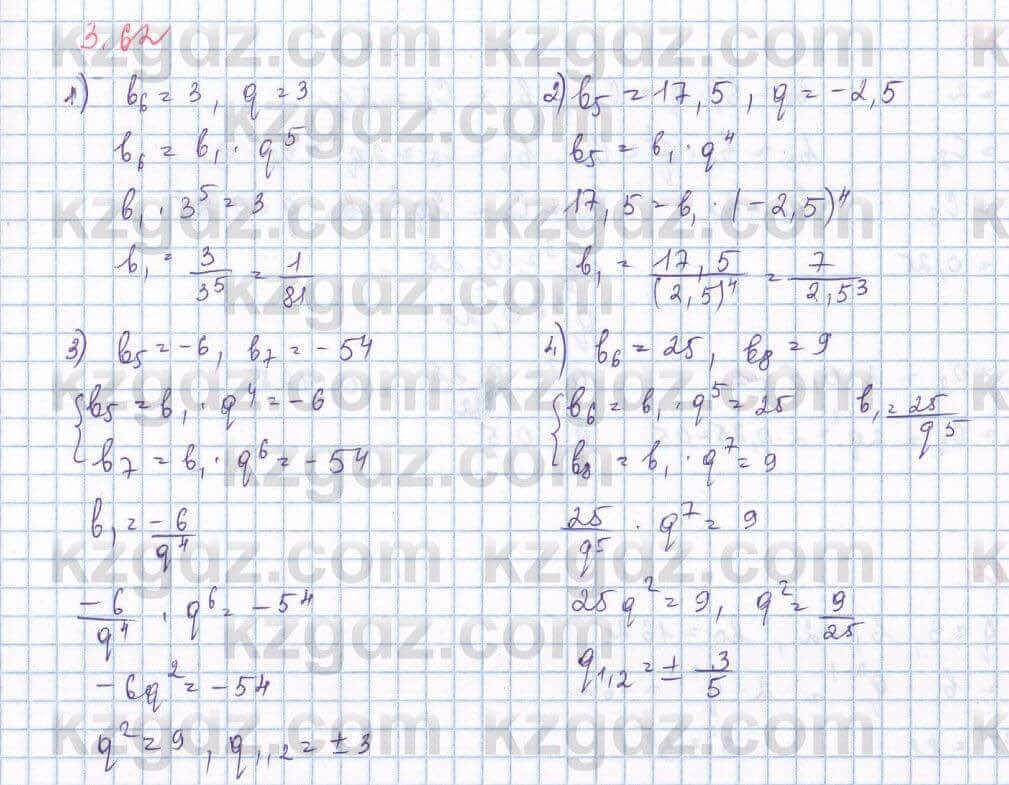 3.62
1) b₆ = 3, q = 3
b₆ = b₁ · q⁵
b₁ · 3⁵ = 3
b₁ = 3/3⁵ = 1/81
2) b₅ = 17,5, q = -2,5
b₅ = b₁ · q⁴
17,5 = b₁ · (-2,5)⁴
b₁ = 17,5/(2,5)⁴ = 7/2,5³
3) b₅ = -6, b₇ = -54
{ b₅ = b₁ · q⁴ = -6
b₇ = b₁ · q⁶ = -54
b₁ = -6/q⁴
-6/q⁴ · q⁶ = -54
-6q² = -54
q² = 9, q₁,₂ = ±3
4) b₆ = 25, b₈ = 9
{ b₆ = b₁ · q⁵ = 25 b₁ = 25/q⁵
b₈ = b₁ · q⁷ = 9
25/q⁵ · q⁷ = 9
25q² = 9, q² = 9/25
q₁,₂ = ± 3/5
kzgdz.com
kzgdz.com
kzgdz.com
kzgdz.com
kzgdz.com
kzgdz.com
kzgdz.com
kzgdz.com
kzgdz.com
kzgdz.com
kzgdz.com
kzgdz.com
kzgdz.com
kzgdz.com